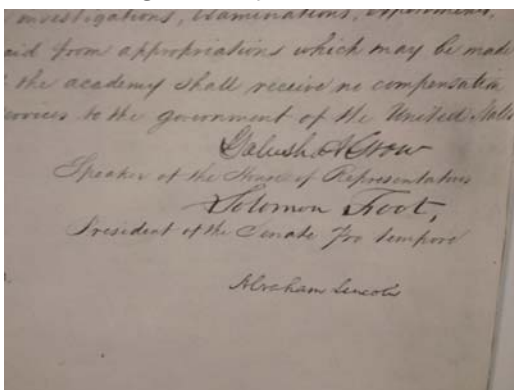 investigations, examinations,
aid from appropriations which may be made
the academy shall receive no compensation
services to the government of the United States
Galusha A Grow
Speaker of the House of Representatives
Solomon Foot,
President of the Senate Pro tempore
Abraham Lincoln